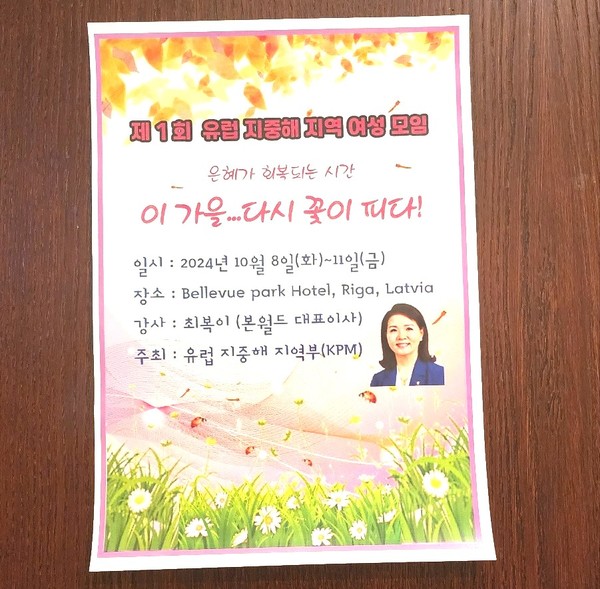 제 1 회 유럽 지중해 지역 여성 모임
은혜가 회복되는 시간
이 가을...다시 꽃이 피다!
일시 : 2024년 10월 8일(화)~11일(금)
장소 : Bellevue park Hotel, Riga, Latvia
강사 : 최복이 (본월드 대표이사)
주최 : 유럽 지중해 지역부(KPM)